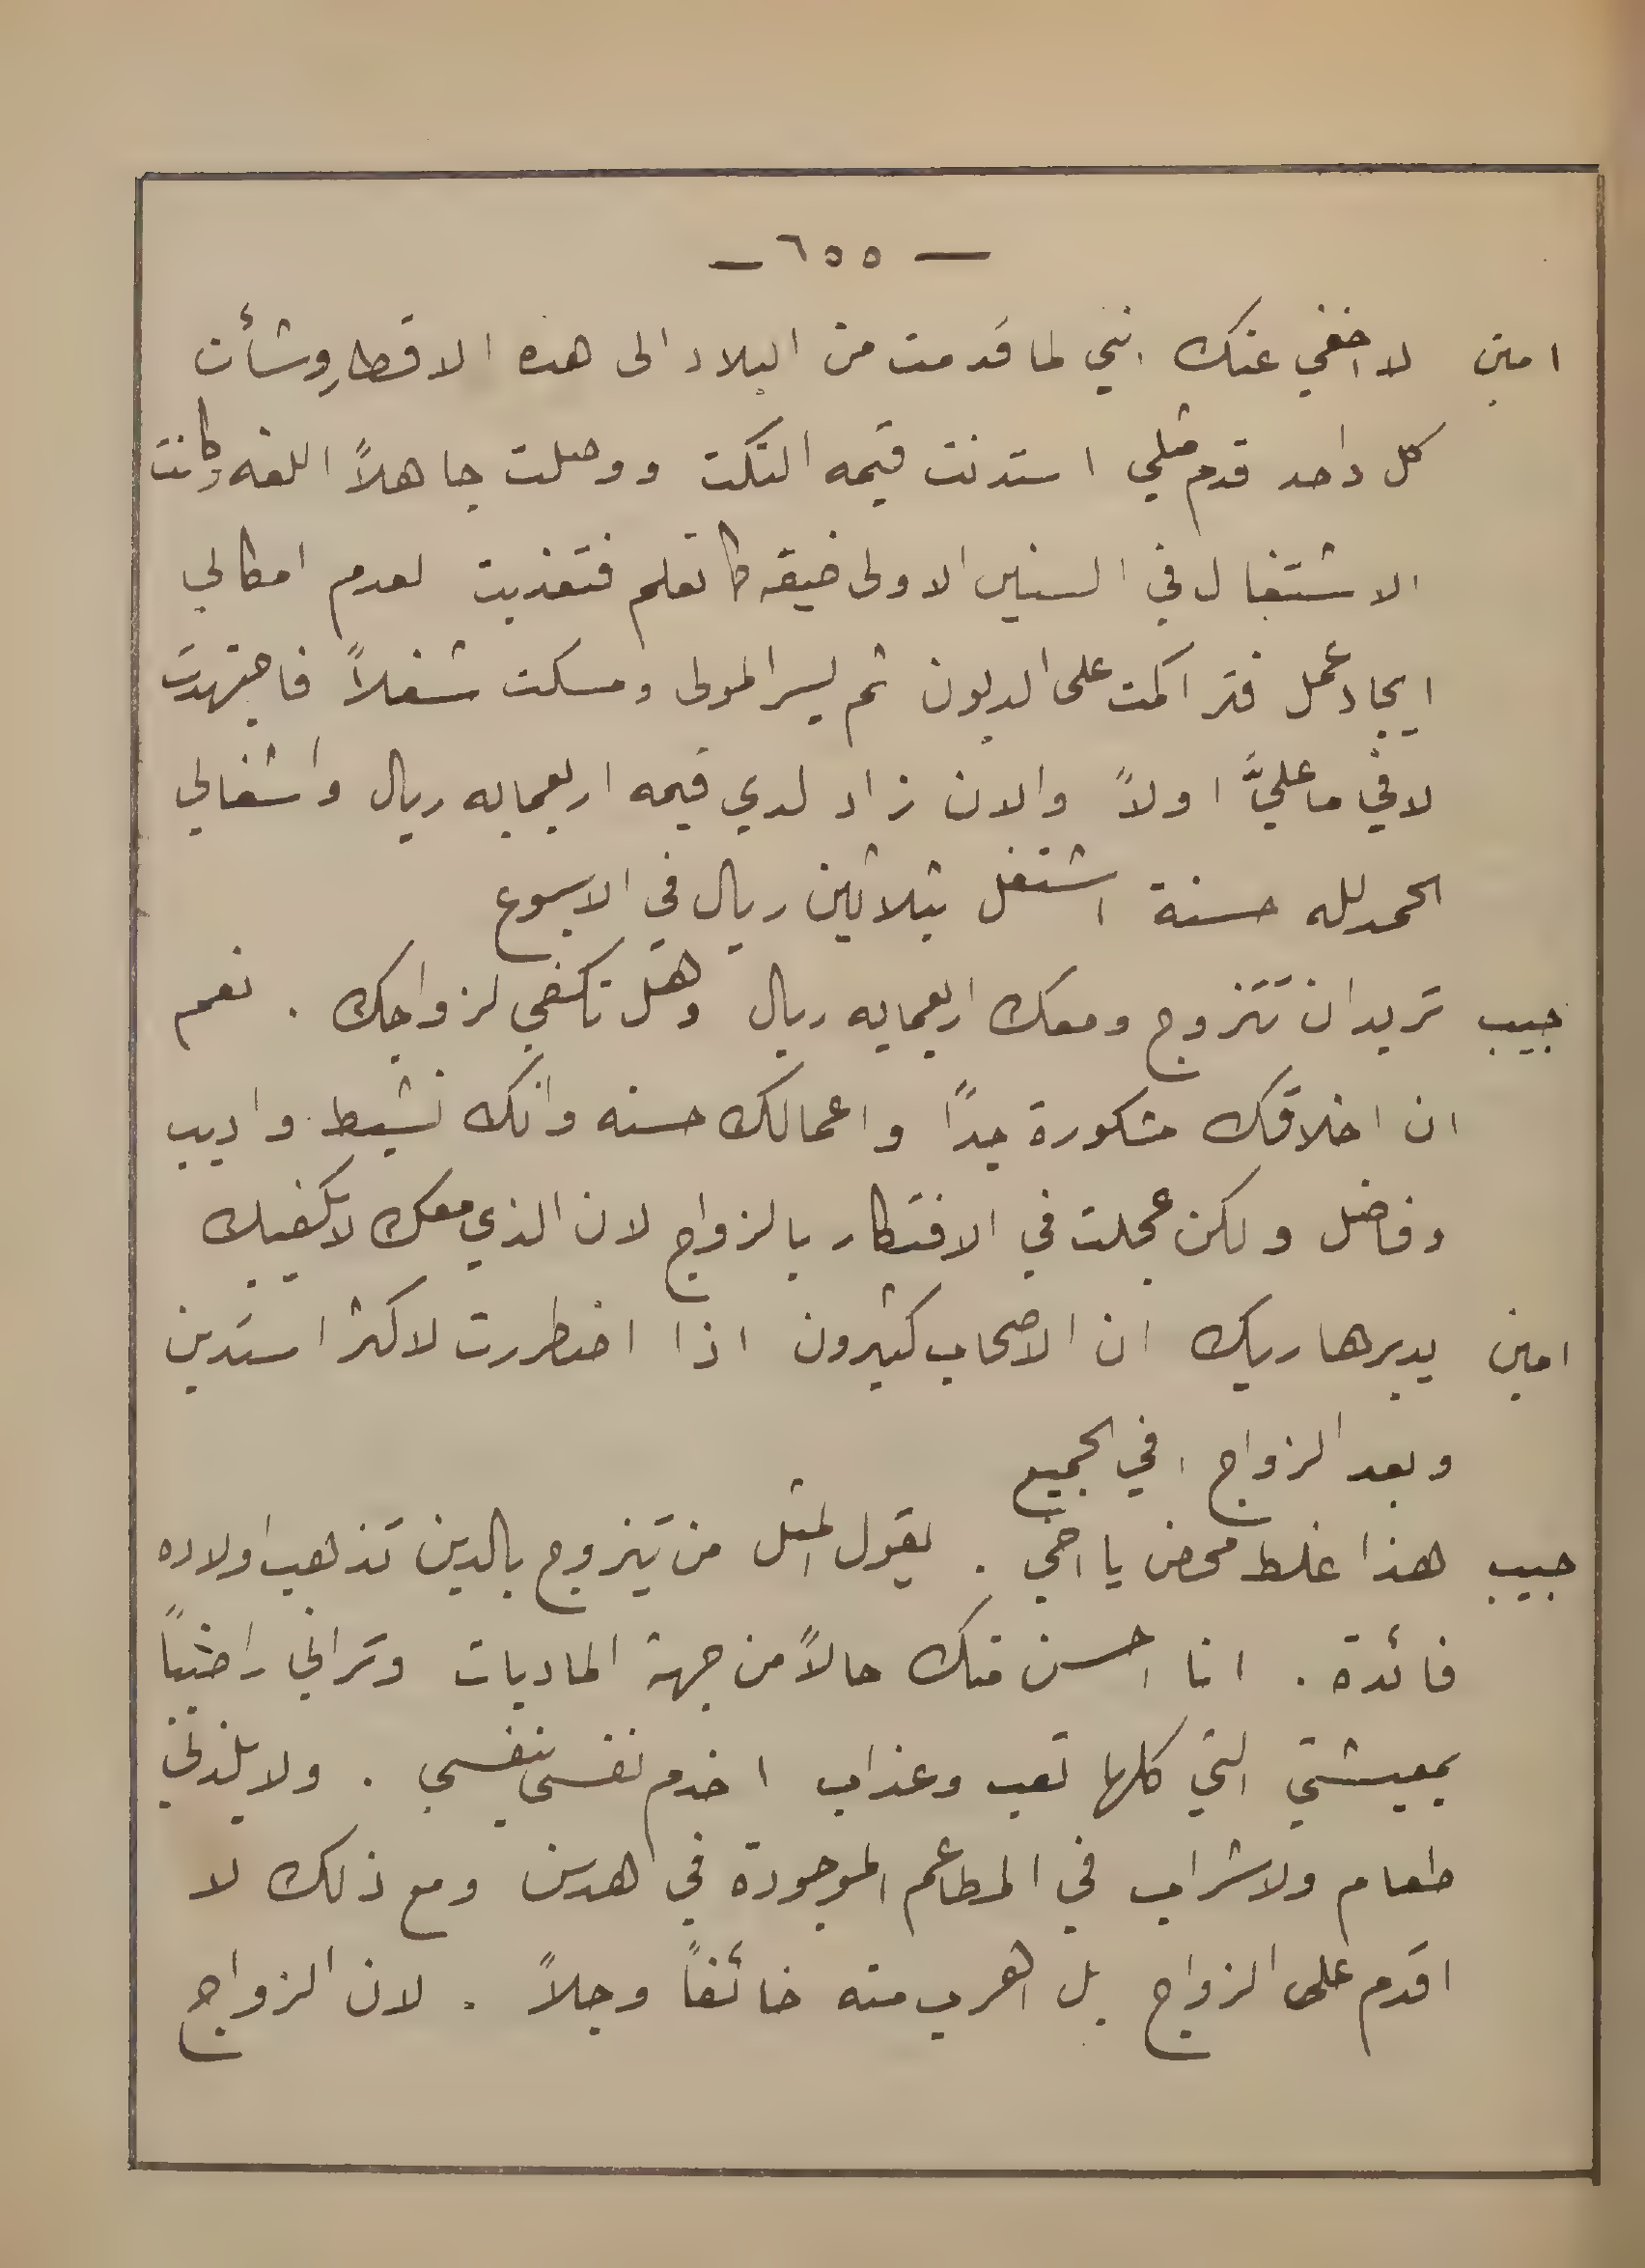 — ٦٥٥ —
امين لا اخفي عنك انني لما قدمت من البلاد الى هذه الاقطار وشأن
كل واحد قدم مثلي استدنت قيمه التكت ووصلت جاهلاً اللغه وكانت
الاشتغال في السنين الاولى ضيقه كما تعلم فتعذبت لعدم امكاني
ايجاد عمل فتراكمت علي الديون ثم يسر المولى ومسكت شغلاً فاجتهدت
لافي ما عليَّ اولاً والان زاد لدي قيمه اربعمايه ريال واشغالي
الحمد لله حسنة اشتغل بثلاثين ريال في الاسبوع
حبيب تريد ان تتزوج ومعك اربعمايه ريال وهل تكفي لزواجك . نعم
ان اخلاقك مشكورة جداً واعمالك حسنه وانك نشيط واديب
وفاضل ولكن عجلت في الافتكار بالزواج لان الذي معك لا يكفيك
امين يدبرها ربك ان الاصحاب كثيرون اذا اضطررت لاكثر استدين
وبعد الزواج افي الجميع
حبيب هذا غلط محض يا اخي . يقول المثل من تيزوج بالدين تذهب اولاده
فائدة . انا احسن منك حالاً من جهة الماديات وتراني راضياً
بمعيشتي التي كلها تعب وعذاب اخدم نفسي بنفسي . ولا يلذني
طعام ولا شراب في المطاعم الموجودة في هدسن ومع ذلك لا
اقدم على الزواج بل اهرب منه خائفاً وجلاً . لان الزواج